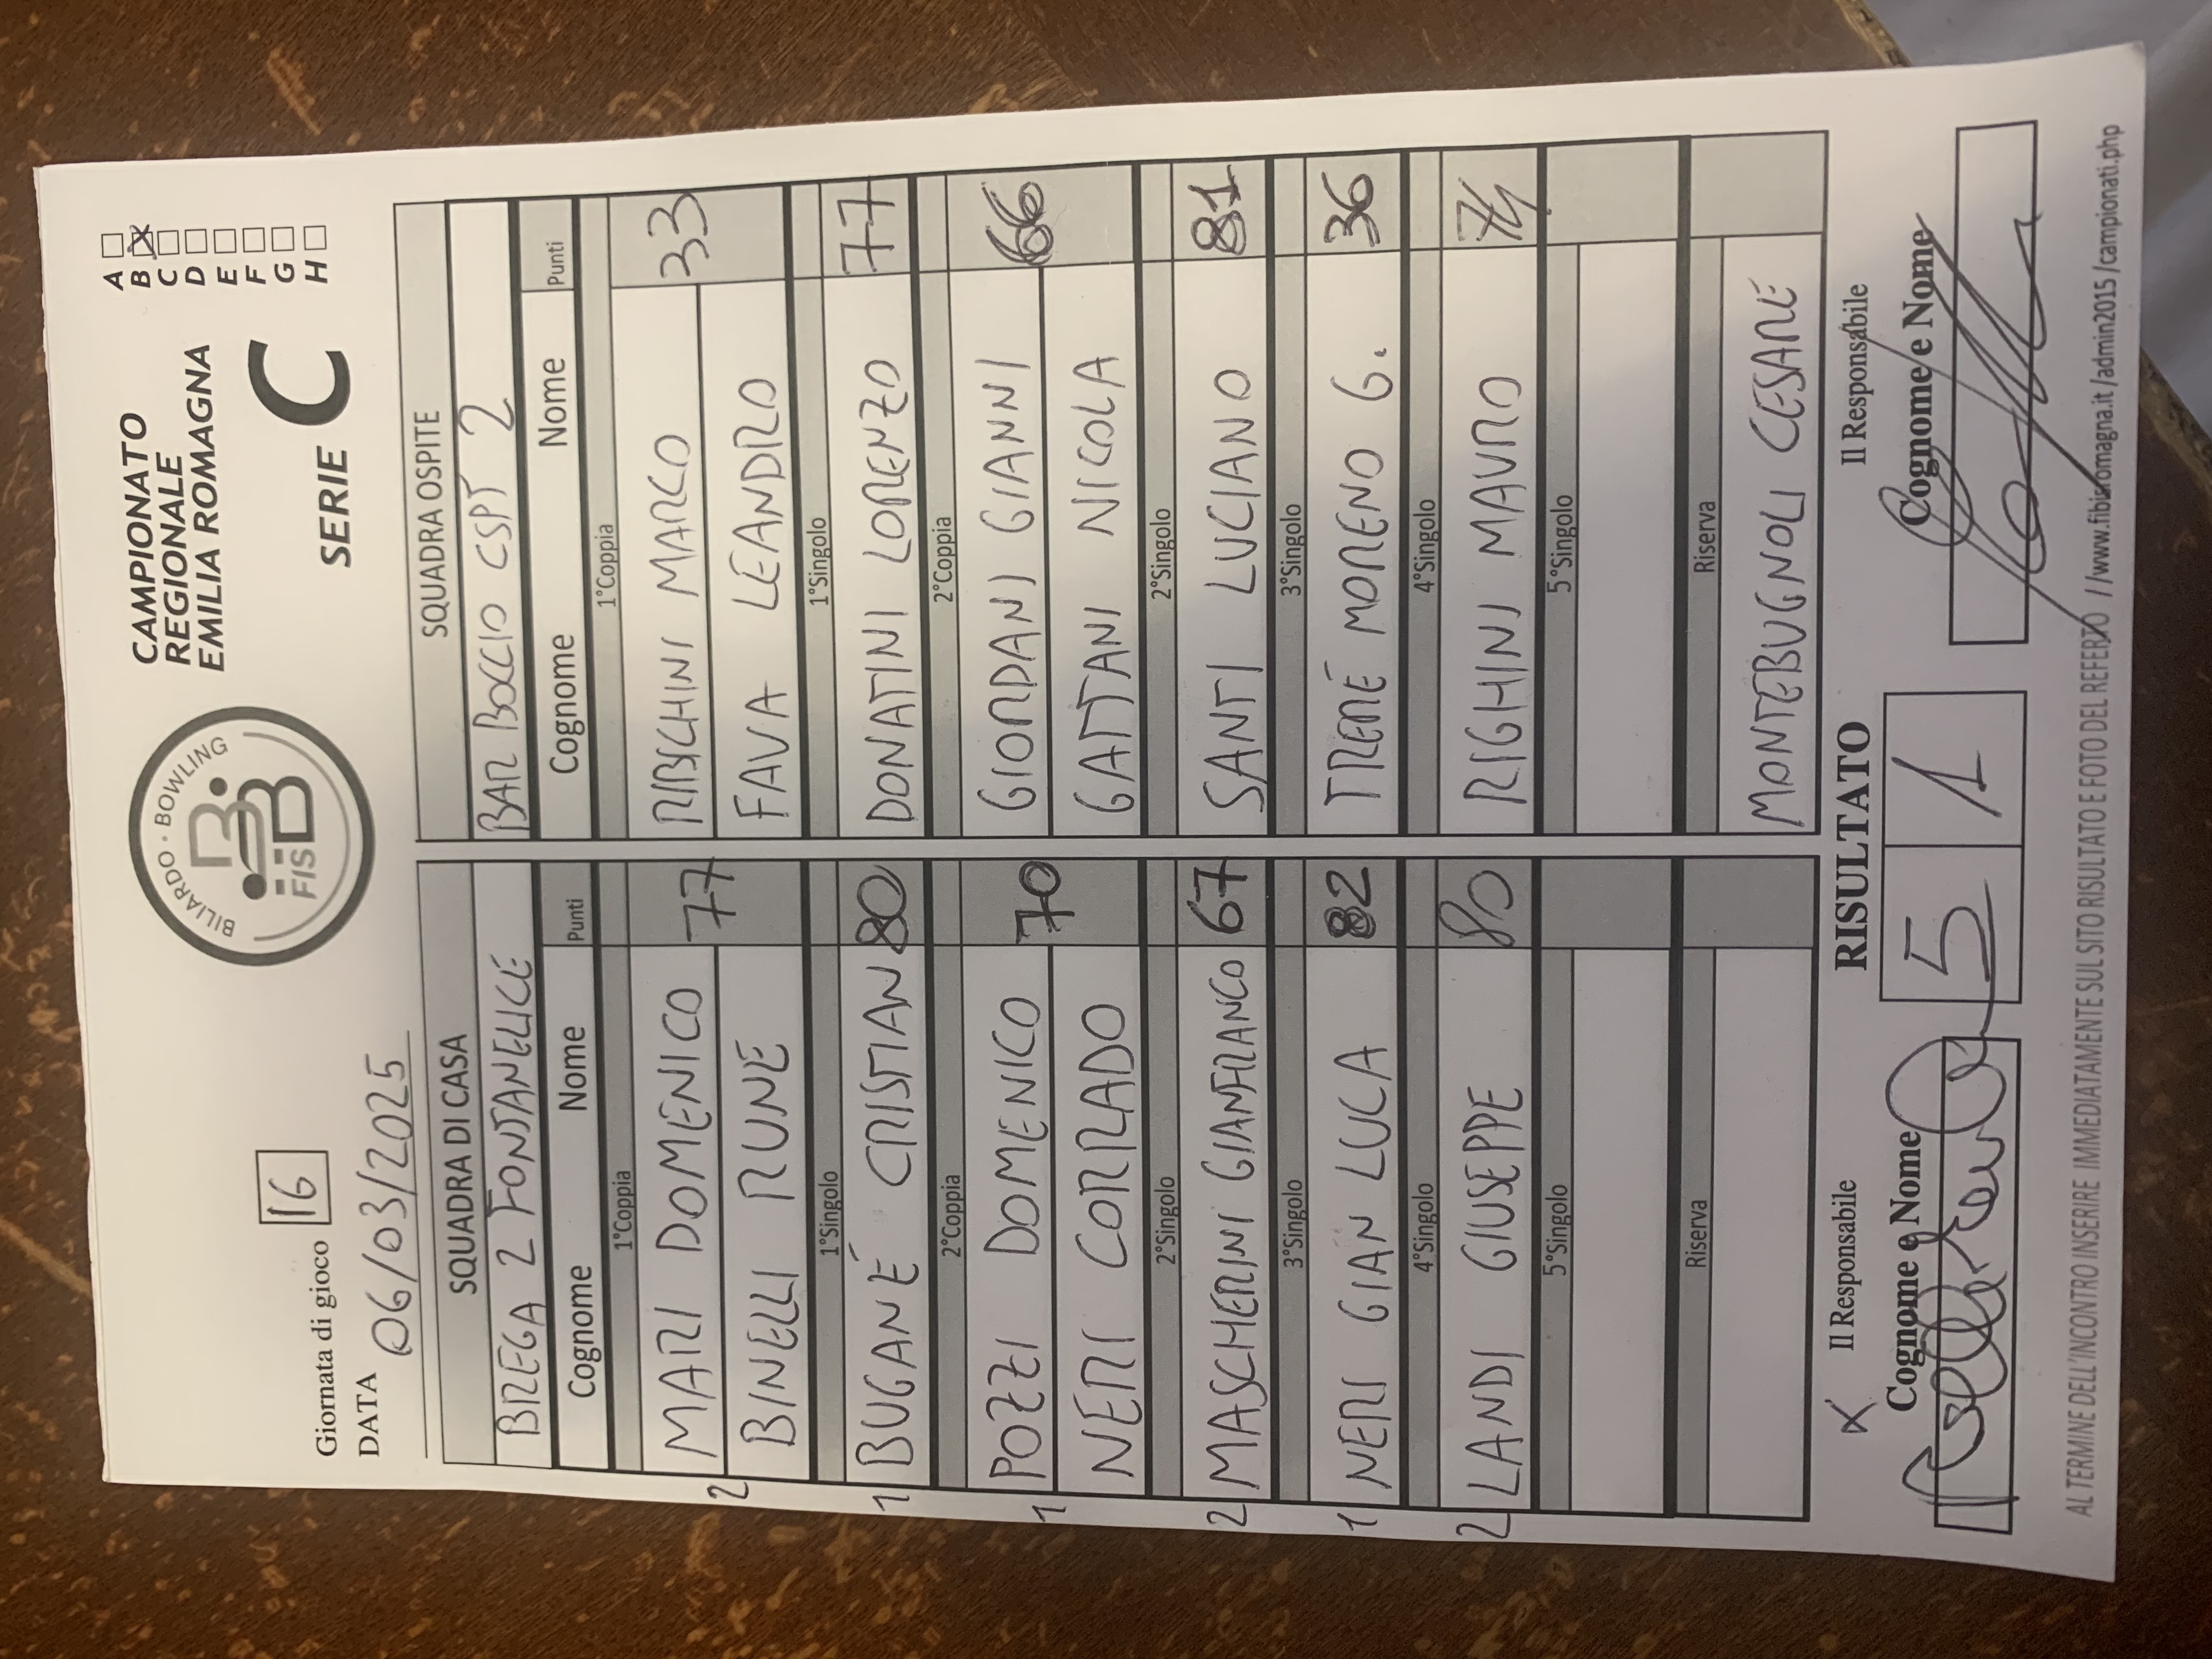 Giornata di gioco 16
DATA 06/03/2025
BILIARDO · BOWLING
FISBB
CAMPIONATO
REGIONALE
EMILIA ROMAGNA
SERIE C
A
B X
C
D
E
F
G
H
SQUADRA DI CASA
BREGA 2 FONTANELICE
Cognome Nome Punti
1°Coppia
2 MARI DOMENICO 77
BINELLI RUNE
1°Singolo
1 BUGANÉ CRISTIAN 80
2°Coppia
1 POZZI DOMENICO 70
NERI CORRADO
2°Singolo
2 MASCHERINI GIANFRANCO 67
3°Singolo
1 NERI GIAN LUCA 82
4°Singolo
2 LANDI GIUSEPPE 80
5°Singolo
Riserva
SQUADRA OSPITE
BAR BOCCIO CSPT 2
Cognome Nome Punti
1°Coppia
RIBICHINI MARCO 33
FAVA LEANDRO
1°Singolo
DONATINI LORENZO 77
2°Coppia
GIORDANI GIANNI 66
GATTANI NICOLA
2°Singolo
SANTI LUCIANO 81
3°Singolo
TRERÉ MORENO G. 36
4°Singolo
RIGHINI MAURO 74
5°Singolo
Riserva
MONTEBUGNOLI CESARE
X Il Responsabile
Cognome e Nome
RISULTATO
5 1
Il Responsabile
Cognome e Nome
AL TERMINE DELL'INCONTRO INSERIRE IMMEDIATAMENTE SUL SITO RISULTATO E FOTO DEL REFERTO //www.fibisromagna.it /admin2015 /campionati.php